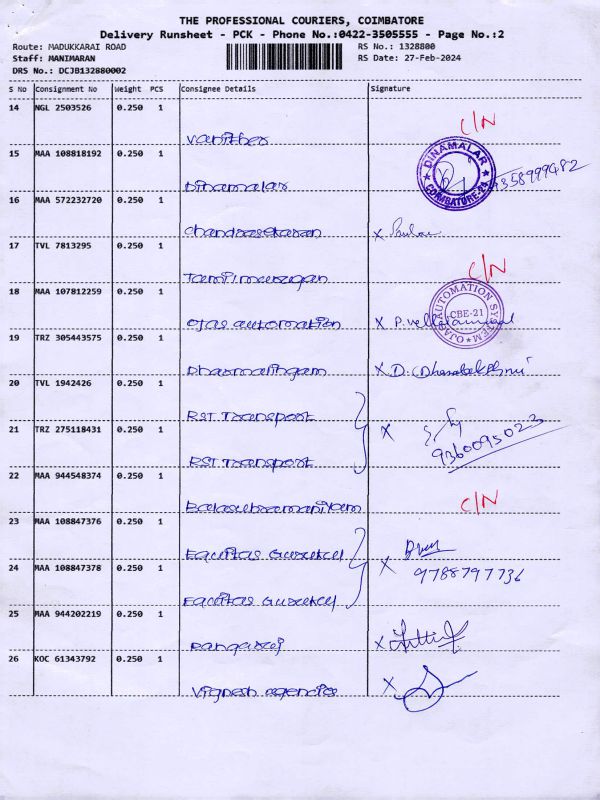 THE PROFESSIONAL COURIERS, COIMBATORE
Delivery Runsheet - PCK - Phone No.:0422-3505555 - Page No.:2
Route: MADUKKARAI ROAD RS No.: 1328800
Staff: MANIMARAN RS Date: 27-Feb-2024
DRS No.: DCJB132880002
S No Consignment No Weight PCS Consignee Details Signature
14 NGL 2503526 0.250 1
C/N
15 MAA 108818192 0.250 1
DINAMALAR
COIMBATORE-24
Dinamalar
16 MAA 572232720 0.250 1
Chandrasekaran X
17 TVL 7813295 0.250 1
C/N
18 MAA 107812259 0.250 1
OJAS AUTOMATION SYSTEM
CBE-21
Ojas automation X
19 TRZ 305443575 0.250 1
Dharmalingam X D.
20 TVL 1942426 0.250 1
RST Transport
21 TRZ 275118431 0.250 1
X
9360095023
RST Transport
22 MAA 944548374 0.250 1
Balasubramaniyam C/N
23 MAA 108847376 0.250 1
Equitas
24 MAA 108847378 0.250 1
X
9788797736
Equitas
25 MAA 944202219 0.250 1
Rangaraj X
26 KOC 61343792 0.250 1
Vignesh agencies X